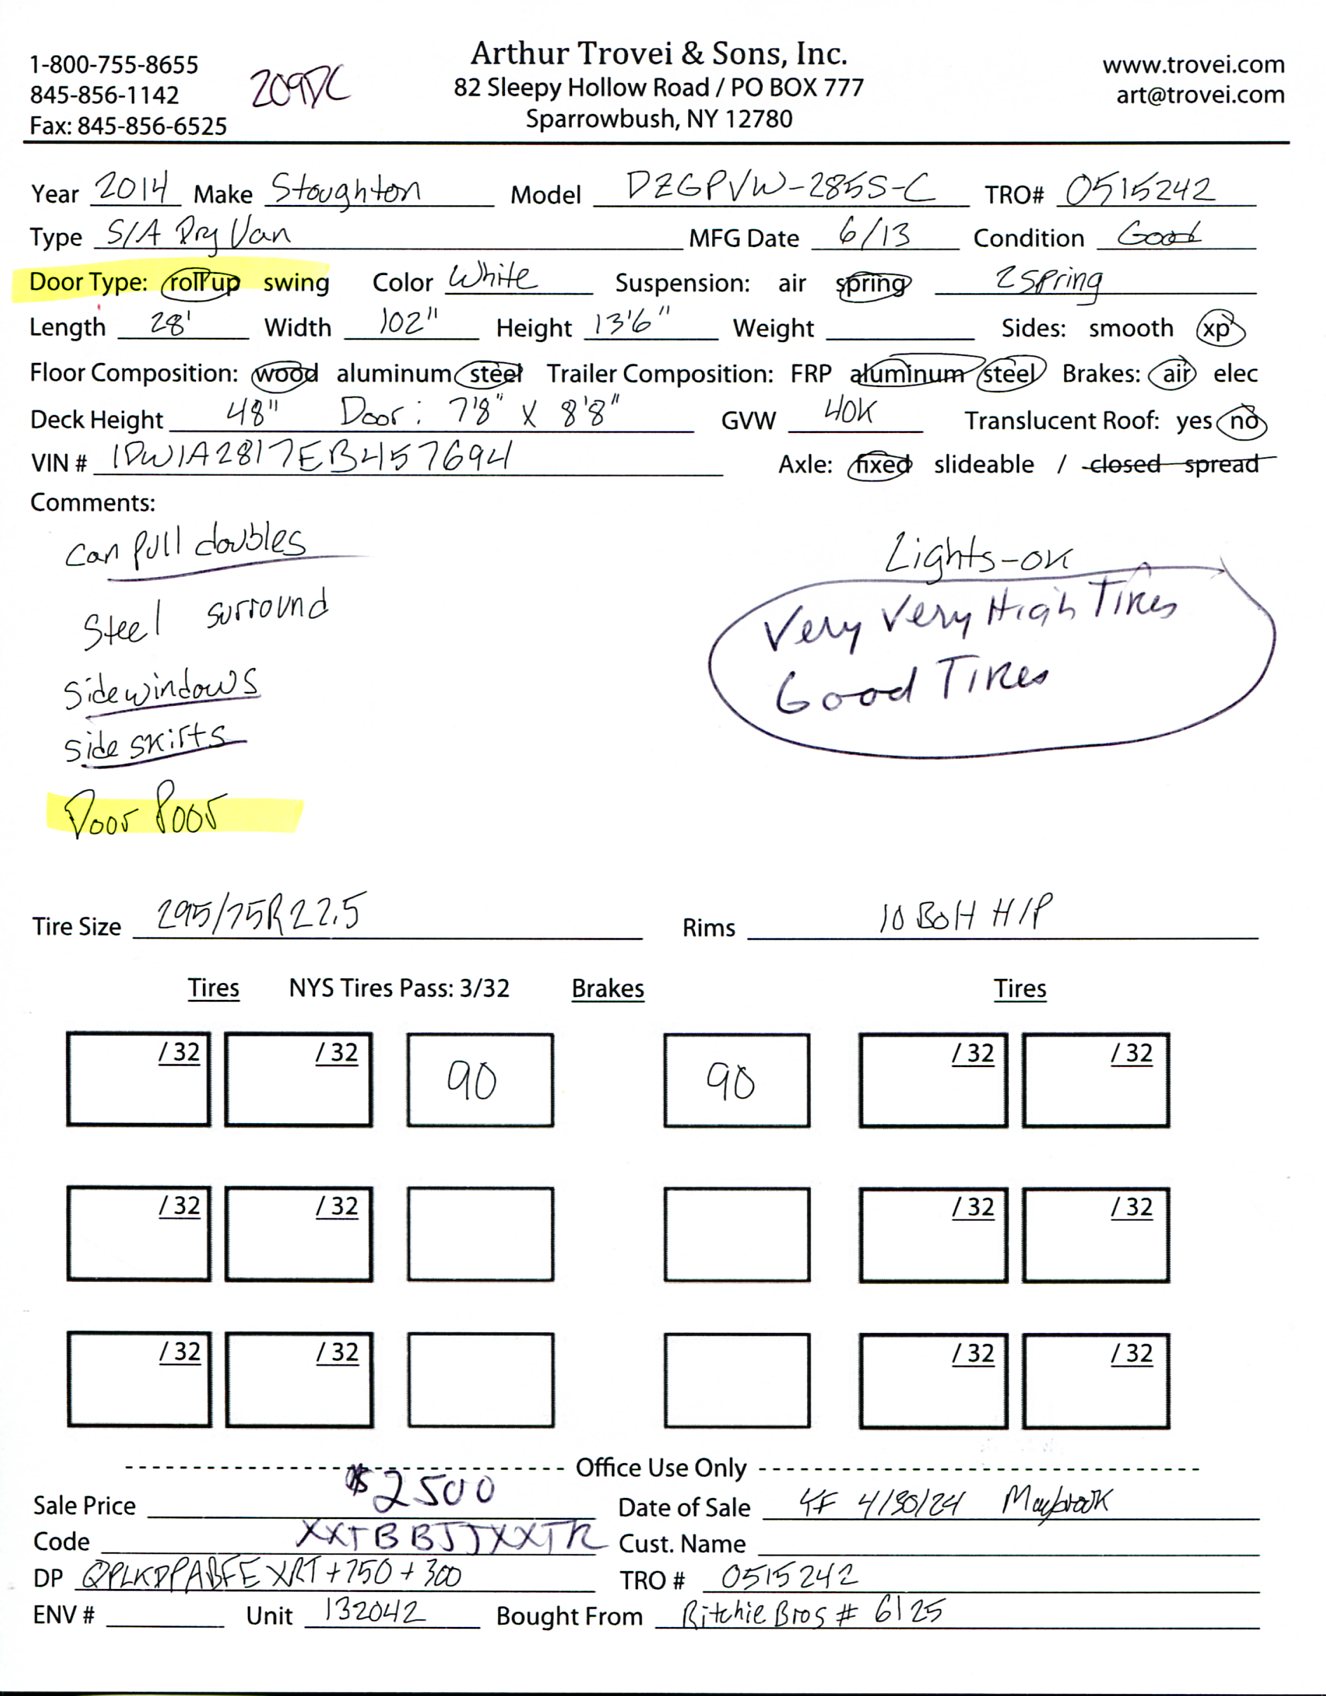 Arthur Trovei & Sons, Inc.
1-800-755-8655 www.trovei.com
82 Sleepy Hollow Road / PO BOX 777
845-856-1142 209DC art@trovei.com
Fax: 845-856-6525 Sparrowbush, NY 12780
Year 2014 Make Stoughton Model DZGPVW-285S-C TRO# 0515242
Type S/A Dry Van MFG Date 6/13 Condition Good
Door Type: roll up swing Color White Suspension: air spring 2 spring
Length 28' Width 102" Height 13'6" Weight Sides: smooth xp
Floor Composition: wood aluminum steel Trailer Composition: FRP aluminum steel Brakes: air elec
Deck Height 48" Door: 7'8" X 8'8" GVW 40K Translucent Roof: yes no
VIN # 1DW1A2817EB457694 Axle: fixed slideable / closed spread
Comments:
can pull doubles
Lights-ok
Steel surround
Very Very High Tires
side windows
Good Tires
side skirts
Door Poor
Tire Size 295/75R22.5 Rims 10 Bolt H/P
Tires NYS Tires Pass: 3/32 Brakes Tires
/ 32 / 32 90 90 / 32 / 32
/ 32 / 32 / 32 / 32
/ 32 / 32 / 32 / 32
Office Use Only
Sale Price $2500 Date of Sale YF 4/30/24 Maybrook
Code XXTBBJJXXTR Cust. Name
DP QPLKDPABFEXRT+750+300 TRO # 0515242
ENV # Unit 132042 Bought From Ritchie Bros # 6125